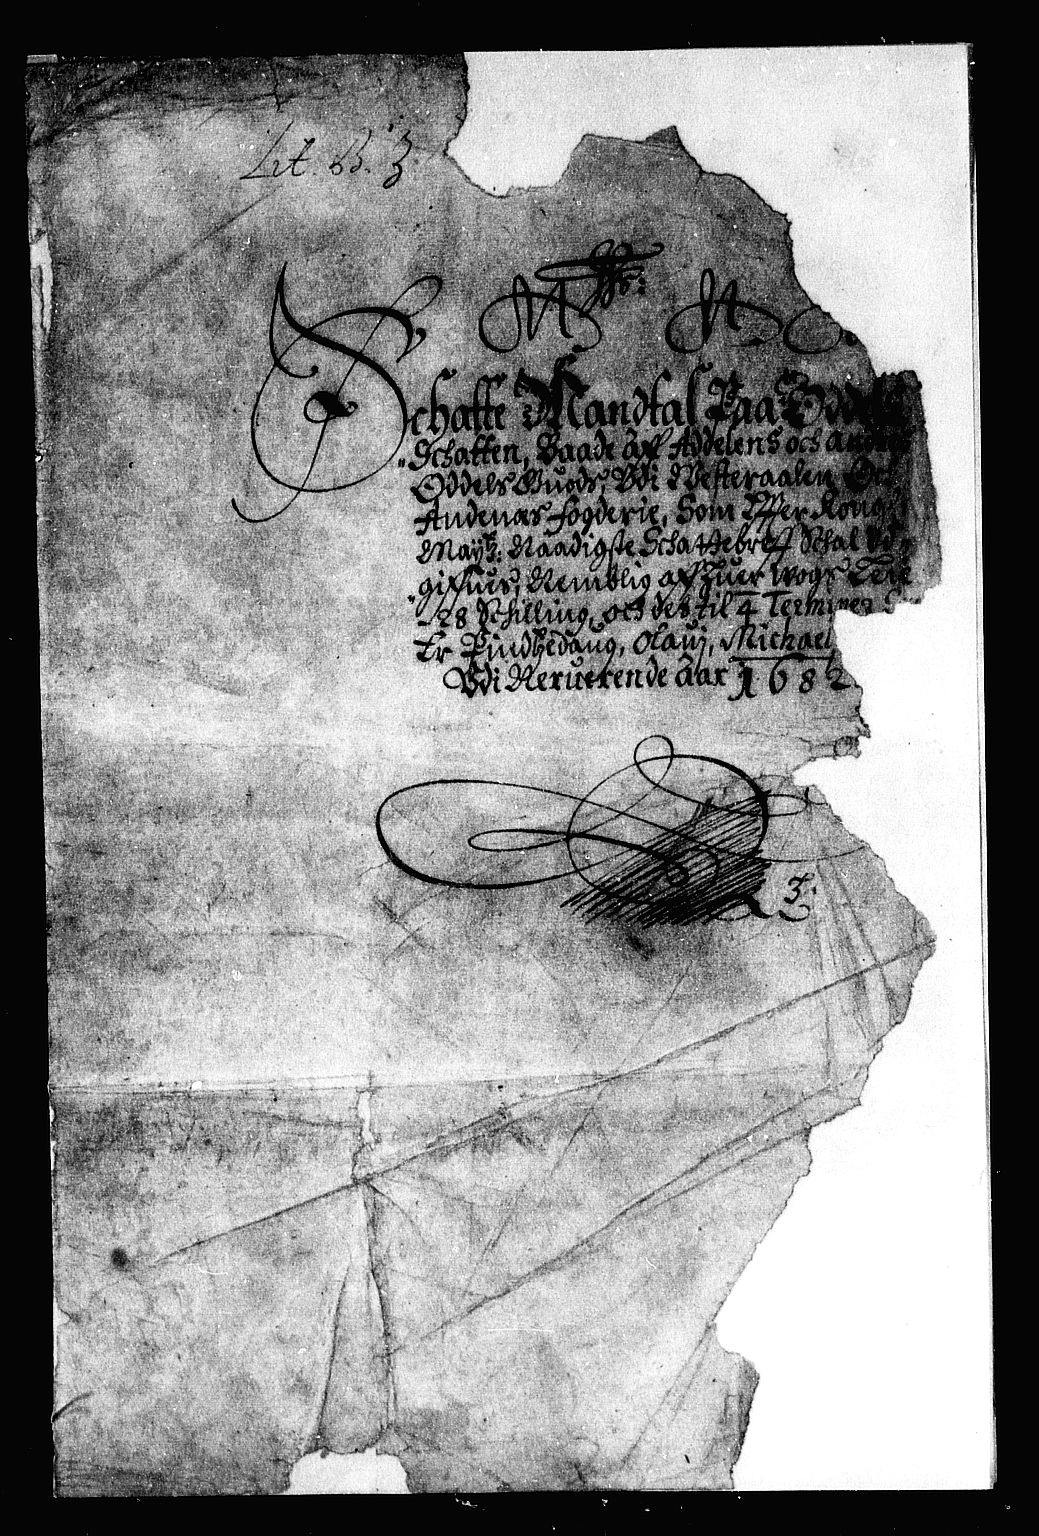 Lit. B. 3.
Schatte Mandtal Paa Oddels
Schatten, Baade Aff Addelens och andet
Oddels Guods, Udi Westeraalen Och
Andenæs fogderie, Som Effter Kong:
Mayß: Naadigste Schattebreff Schal Ud
gifues, Nemblig aff huer wogs Leie
28 Schilling, och des til 4 Terminer
Er Pindtzedaug, Olauj, Michael
Udi Neruerende Aar 1682
3.